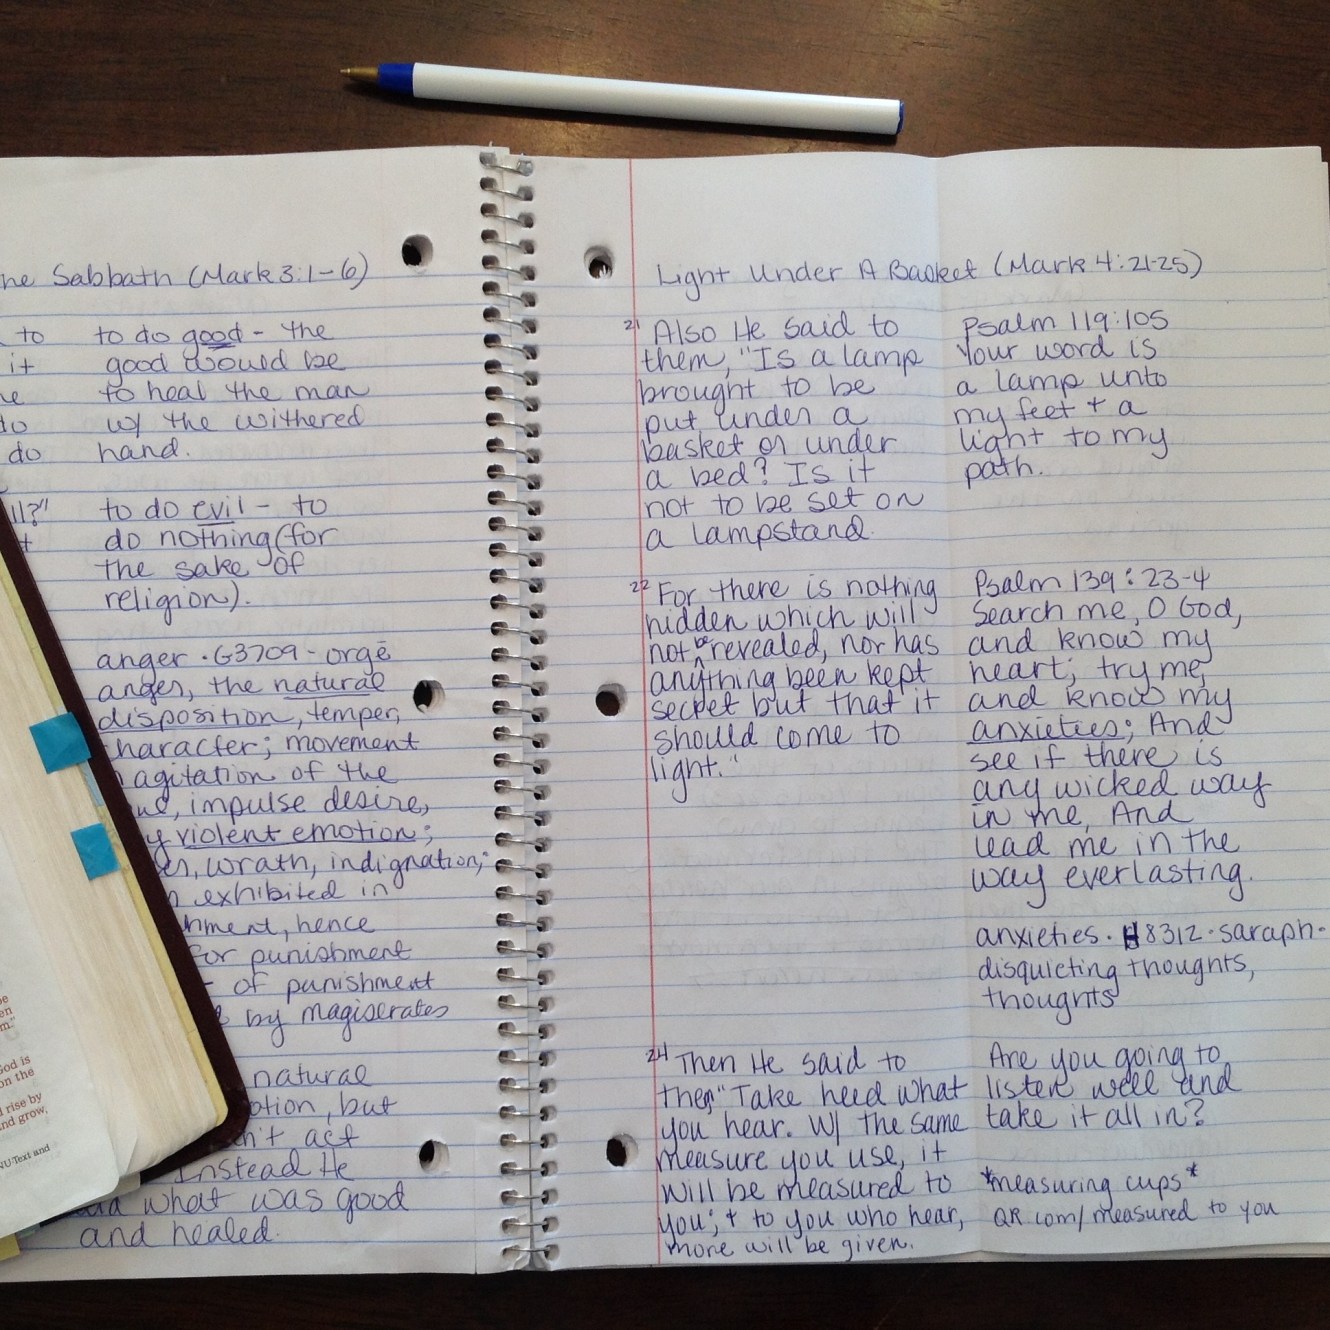 he Sabbath (Mark 3:1-6)
to
it
do
ll?"
to do good - the
good would be
to heal the man
w/ the withered
hand.
to do evil - to
do nothing (for
the sake of
religion).
anger · G3709 - orgē
anger, the natural
disposition, temper,
character; movement
agitation of the
impulse desire,
violent emotion;
wrath, indignation,
exhibited in
hment, hence
for punishment
of punishment
by magistrates
natural
otion, but
n't act
Instead He
what was good
and healed.
God is
on the
rise by
nd grow,
NU-Text and
Light Under A Basket (Mark 4:21-25)
21 Also He said to
them, "Is a lamp
brought to be
put under a
basket or under
a bed? Is it
not to be set on
a lampstand.
22 For there is nothing
hidden which will
not be revealed, nor has
anything been kept
secret but that it
should come to
light."
24 Then He said to
them "Take heed what
you hear. W/ the same
measure you use, it
will be measured to
you; + to you who hear,
more will be given.
Psalm 119:105
Your word is
a lamp unto
my feet + a
light to my
path.
Psalm 139:23-4
Search me, O God,
and know my
heart; try me,
and know my
anxieties; And
see if there is
any wicked way
in me, And
lead me in the
way everlasting.
anxieties · H8312 · saraph -
disquieting thoughts,
thoughts
Are you going to
listen well and
take it all in?
*measuring cups*
QR com/measured to you